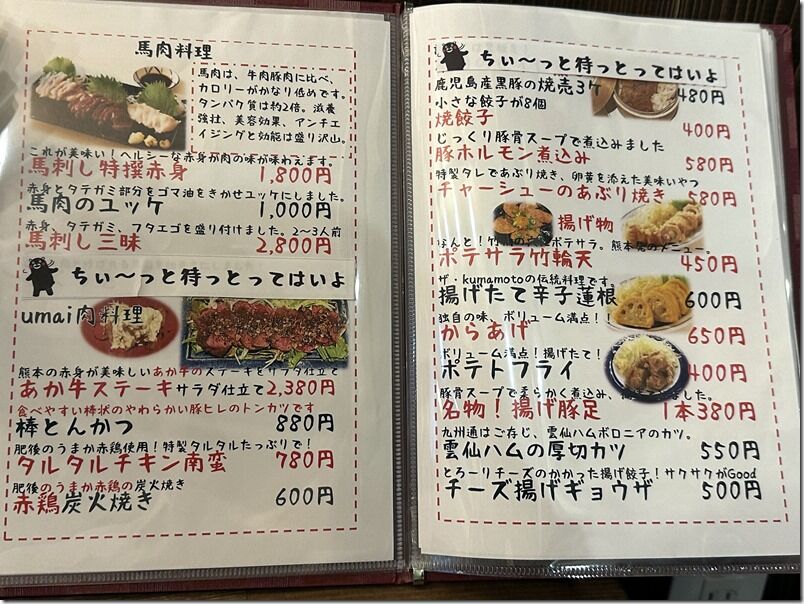 馬肉料理
馬肉は、牛肉豚肉に比べ、
カロリーがかなり低めです。
タンパク質は約2倍。滋養
強壮、美容効果、アンチエ
イジングと効能は盛り沢山。
これが美味い!ヘルシーな赤身が肉の味が味わえます。
馬刺し特撰赤身 1,800円
赤身とタテガミ部分をゴマ油をきかせユッケにしました。
馬肉のユッケ 1,000円
赤身、タテガミ、フタエゴを盛り付けました。2~3人前
馬刺し三昧 2,800円
ちぃ~っと待っとってはいよ
umai肉料理
熊本の赤身が美味しいあか牛のステーキをサラダ仕立て
あか牛ステーキサラダ仕立て2,380円
食べやすい棒状のやわらかい豚ヒレのトンカツです
棒とんかつ 880円
肥後のうまか赤鶏使用!特製タルタルたっぷりで!
タルタルチキン南蛮 780円
肥後のうまか赤鶏の炭火焼き
赤鶏炭火焼き 600円
ちぃ~っと待っとってはいよ
鹿児島産黒豚の焼売3ケ 480円
小さな餃子が8個
焼餃子 400円
じっくり豚骨スープで煮込みました
豚ホルモン煮込み 580円
特製タレであぶり焼き、卵黄を添えた美味いやつ
チャーシューのあぶり焼き 580円
揚げ物
なんと!竹輪の ポテサラ。熊本 のメニュー。
ポテサラ竹輪天 450円
ザ・kumamotoの伝統料理です。
揚げたて辛子蓮根 600円
独自の味、ボリューム満点!!
からあげ 650円
ボリューム満点!揚げたて!
ポテトフライ 400円
豚骨スープで柔らかく煮込み、
名物!揚げ豚足 1本380円
九州通はご存じ、雲仙ハムボロニアのカツ。
雲仙ハムの厚切カツ 550円
とろーりチーズのかかった揚げ餃子!サクサクがGood
チーズ揚げギョウザ 500円